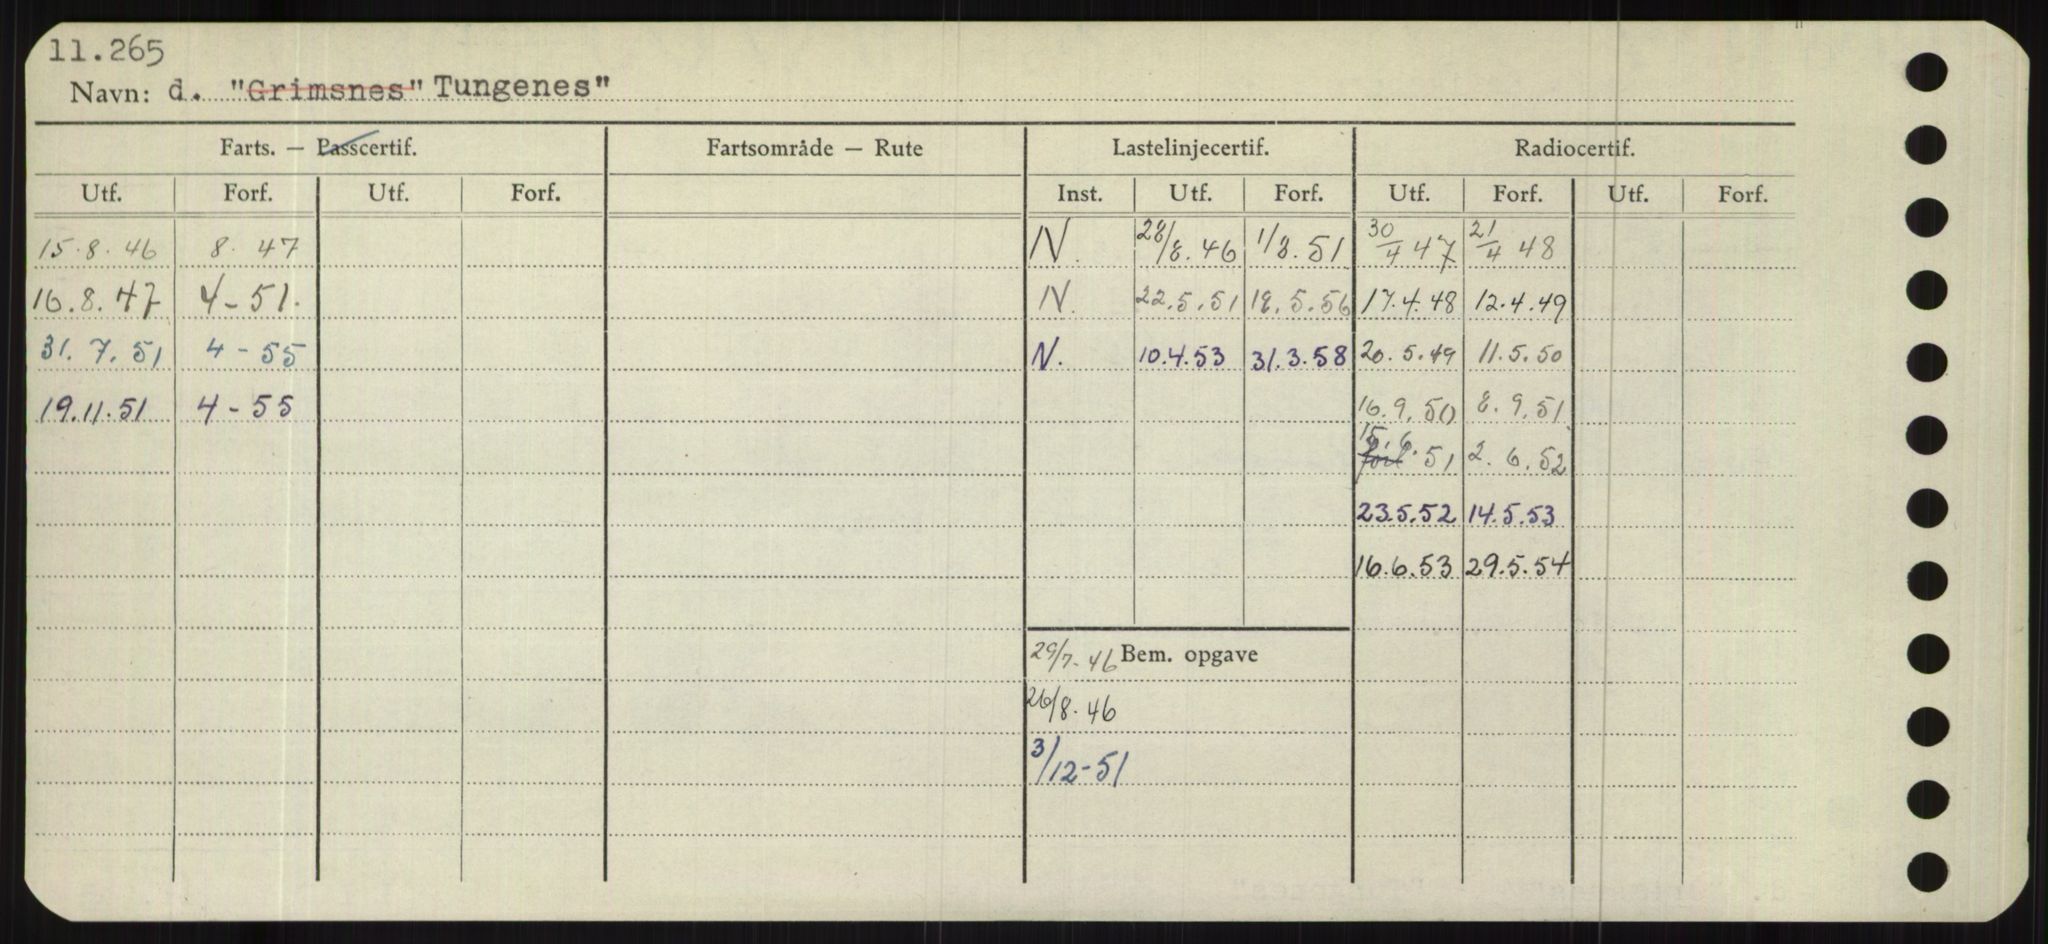 11.265
Navn: d. "Grimsnes" Tungenes"
Farts. — Passcertif. Fartsområde — Rute Lastelinjecertif. Radiocertif.
Utf. Forf. Utf. Forf. Inst. Utf. Forf. Utf. Forf. Utf. Forf.
15.8.46 8. 47 N. 28/8.46 1/8.51 30/4 47 21/4 48
16.8.47 4-51. N. 22.5.51 18.5.56 17.4.48 12.4.49
31.7.51 4-55 N. 10.4.53 31.3.58 20.5.49 11.5.50
19.11.51 4-55 16.9.50 8.9.51
15.6.51 2.6.52
23.5.52 14.5.53
16.6.53 29.5.54
29/7-46 Bem. opgave
26/8.46
3/12-51